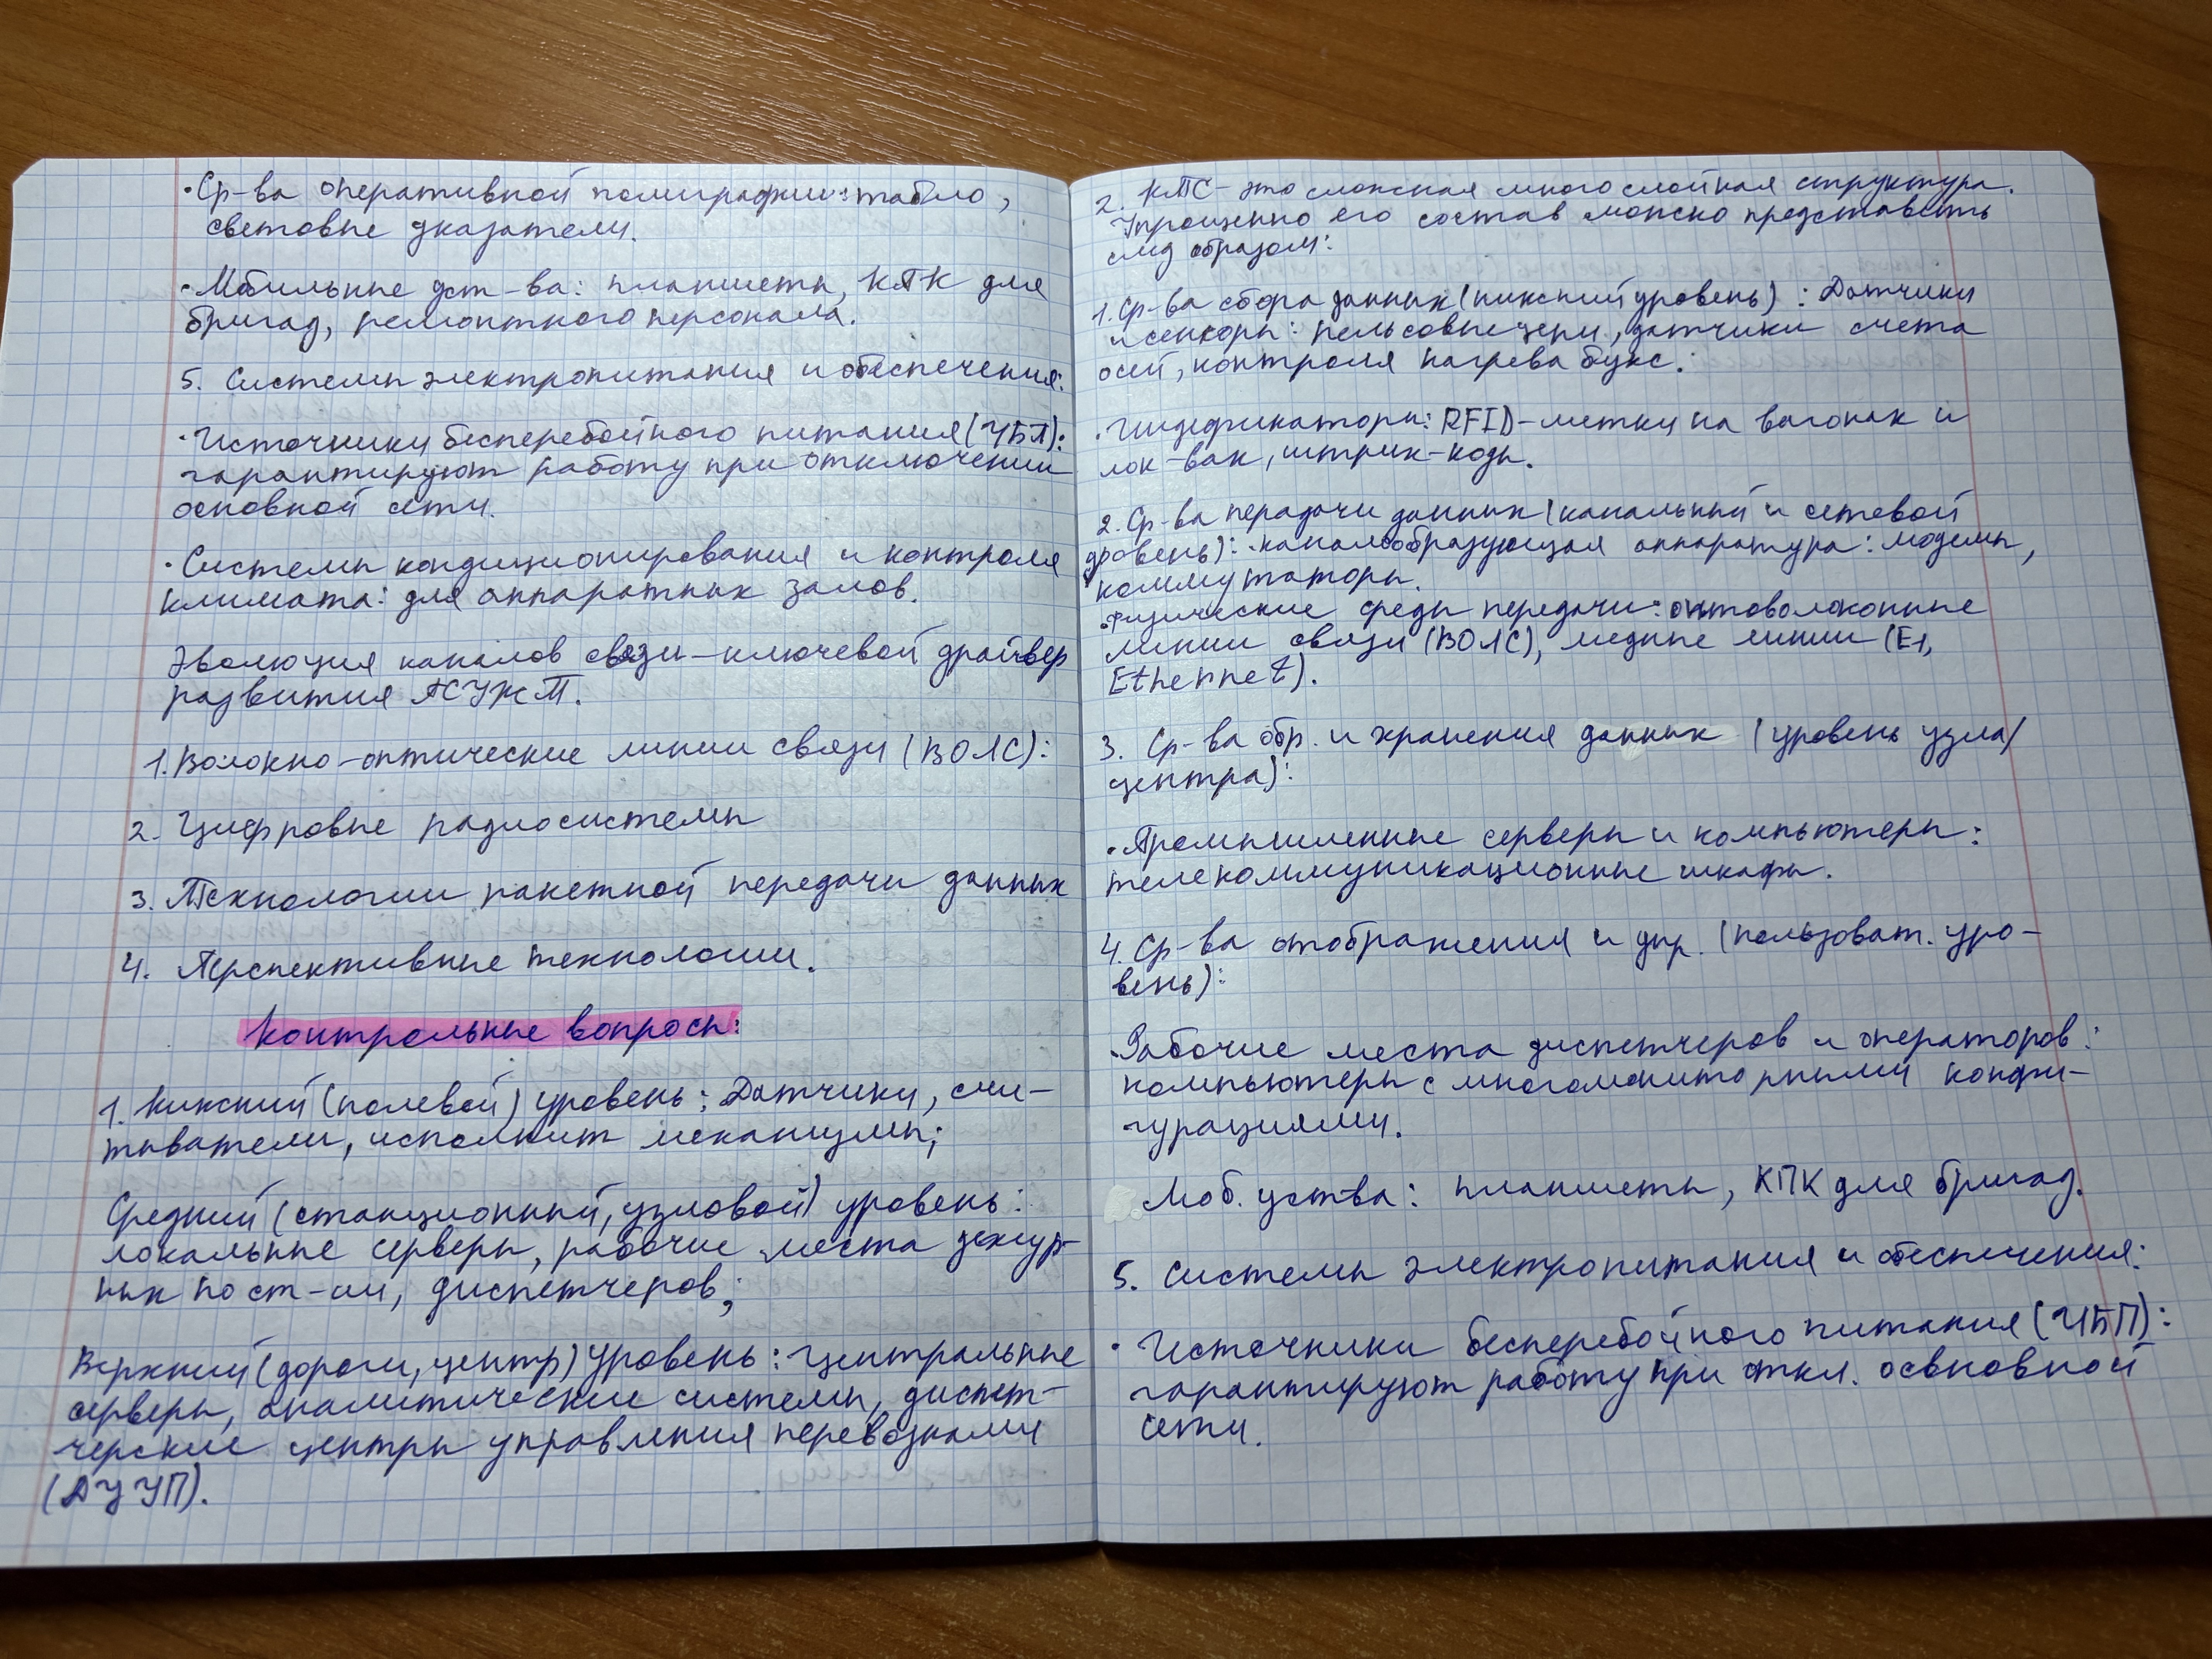 · Ср-ва оперативной полиграфии: табло,
световые указатели.
· Мобильные уст-ва: планшеты, КПК для
бригад, ремонтного персонала.
5. Системы электропитания и обеспечения:
· Источники бесперебойного питания (УБП):
гарантируют работу при отключении
основной сети.
· Системы кондиционирования и контроля
климата: для аппаратных залов.
Эволюция каналов связи – ключевой драйвер
развития АСУЖТ.
1. Волокно-оптические линии связи (ВОЛС):
2. Цифровые радиосистемы
3. Технологии пакетной передачи данных
4. Перспективные технологии.
Контрольные вопросы:
1. Нижний (полевой) уровень: Датчики, счи-
тыватели, исполнит механизмы;
Средний (станционный, узловой) уровень:
локальные серверы, рабочие места дежур-
ных по ст-ии, диспетчеров;
Верхний (дороги, центр) уровень: центральные
серверы, аналитические системы, диспет-
черские центры управления перевозками
(ДЦУП).
2. КТС – это сложная многослойная структура.
Упрощенно его состав можно представить
след образом:
1. Ср-ва сбора данных (нижний уровень): Датчики
и сенсоры: рельсовые цепи, датчики счета
осей, контроля нагрева букс.:
· Индификаторы: RFID-метки на вагонах и
лок-вах, штрих-коды.
2. Ср-ва передачи данных (канальный и сетевой
уровень): · каналообразующая аппаратура: модемы,
коммутаторы.
· Физические среды передачи: оптоволоконные
линии связи (ВОЛС), медные линии (Е1,
Ethernet).
3. Ср-ва обр. и хранения данных (уровень узла/
центра):
· Промышленные серверы и компьютеры:
телекоммуникационные шкафы.
4. Ср-ва отображения и упр. (пользоват. уро-
вень):
· Рабочие места диспетчеров и операторов:
компьютеры с многомониторными конфи-
гурациями.
Моб. уства: планшеты, КПК для бригад.
5. Системы электропитания и обеспечения:
· Источники бесперебойного питания (ИБП):
гарантируют работу при откл. освновной
сети.